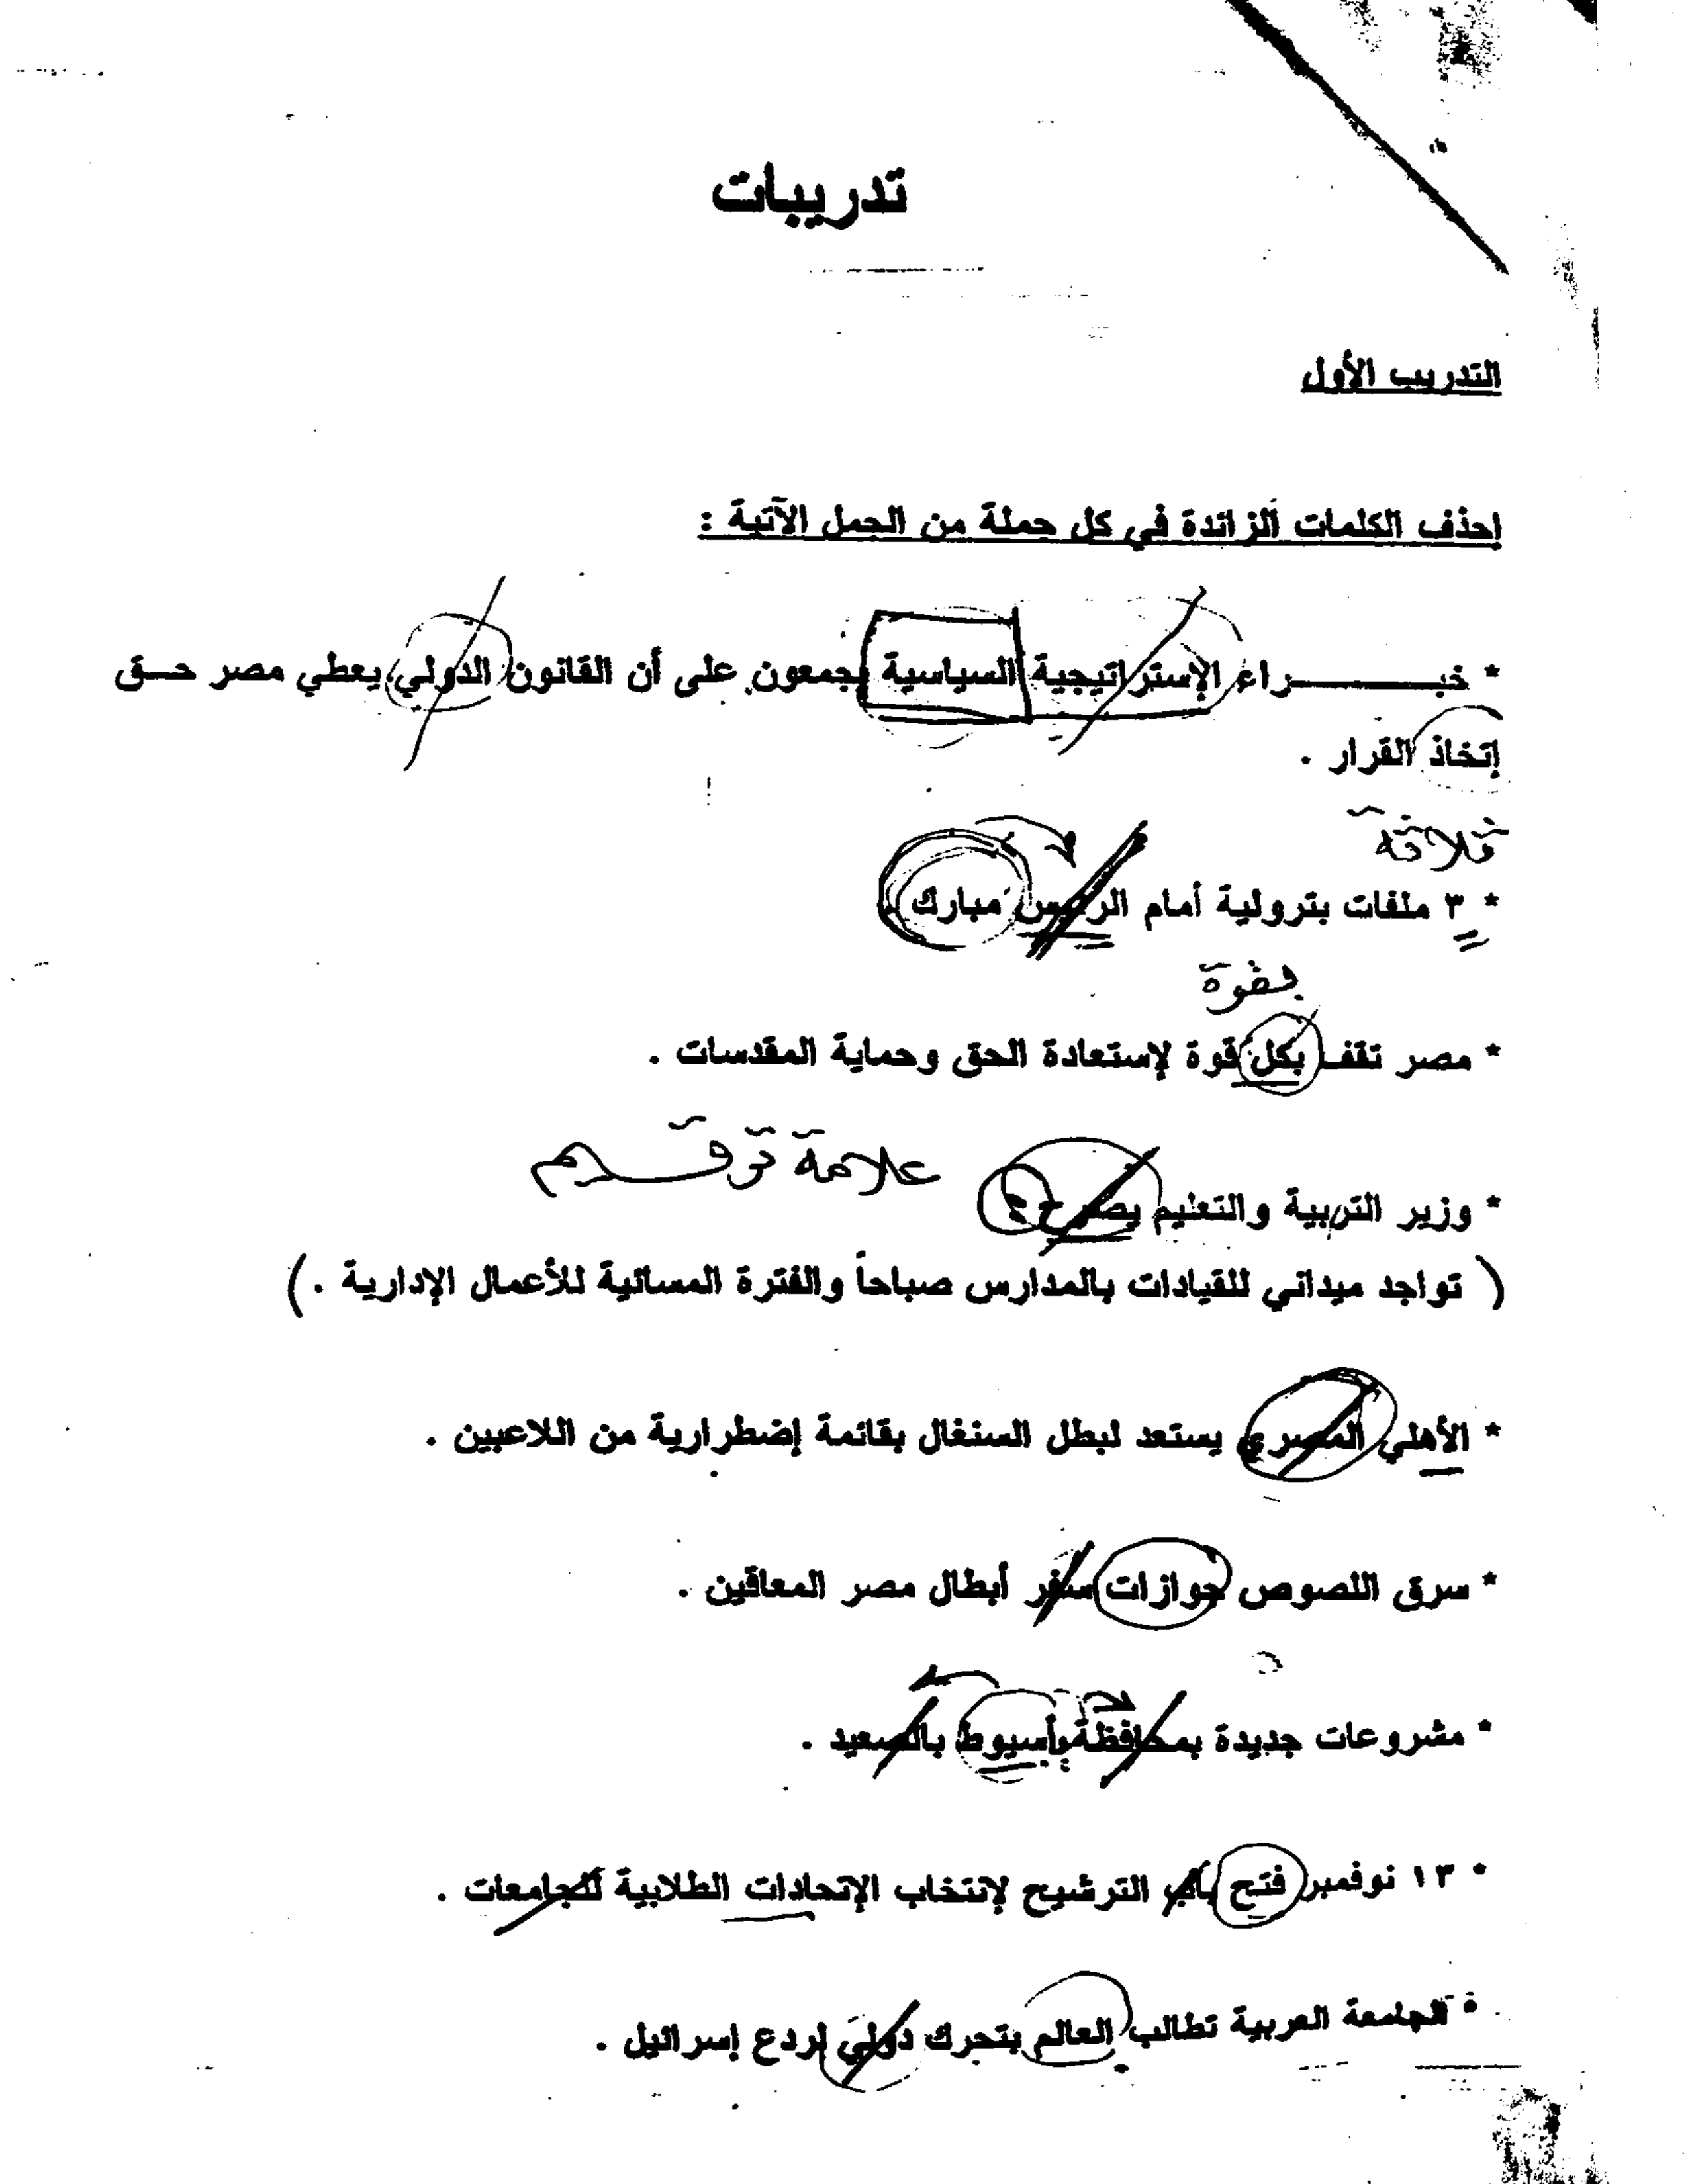 تدريبات
التدريب الأول
إحذف الكلمات الزائدة في كل جملة من الجمل الآتية :
* خبـــــراء الإستراتيجية السياسية يجمعون على أن القانون الدولي يعطي مصر حـق
إتخاذ القرار .
ثلاثة
* ٣ ملفات بترولية أمام الرئيس مبارك .
بقوة
* مصر تقف بكل قوة لإستعادة الحق وحماية المقدسات .
علامة ترقيم
* وزير التربية والتعليم يصرح :
( تواجد ميداني للقيادات بالمدارس صباحاً والفترة المسائية للأعمال الإدارية . )
* الأهلي المصري يستعد لبطل السنغال بقائمة إضطرارية من اللاعبين .
* سرق اللصوص جوازات سفر أبطال مصر المعاقين .
* مشروعات جديدة بمحافظة أسيوط بالصعيد .
* ١٣ نوفمبر فتح باب الترشيح لإنتخاب الإتحادات الطلابية للجامعات .
* الجامعة العربية تطالب العالم بتحرك دولي لردع إسرائيل .